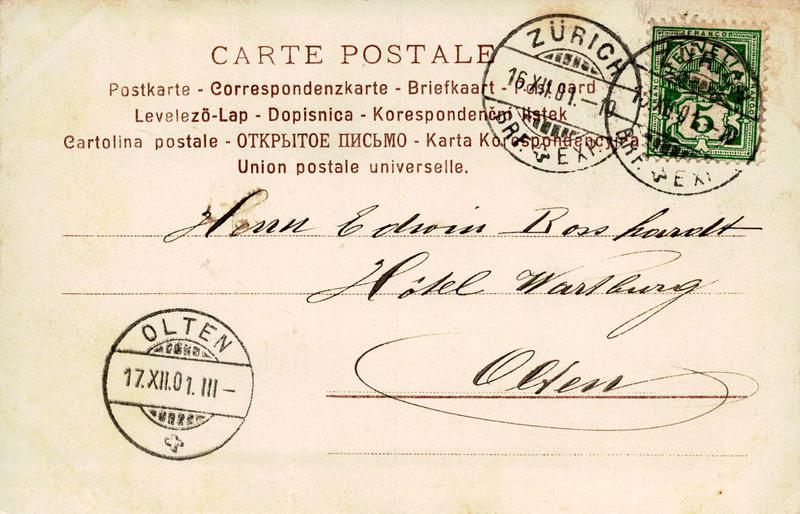 CARTE POSTALE
Postkarte - Correspondenzkarte - Briefkaart - Post card
Levelezö-Lap - Dopisnica - Korespondenční lístek
Cartolina postale - ОТКРЫТОЕ ПИСЬМО - Karta Korespondencyjna
Union postale universelle.
ZÜRICH
16.XII.01.-10
BRF. EXP.
FRANCO
HELVETIA
5
BRF. EXP.
Herrn Edwin Bosshardt
Hôtel Wartburg
Olten
OLTEN
17.XII.01.III-